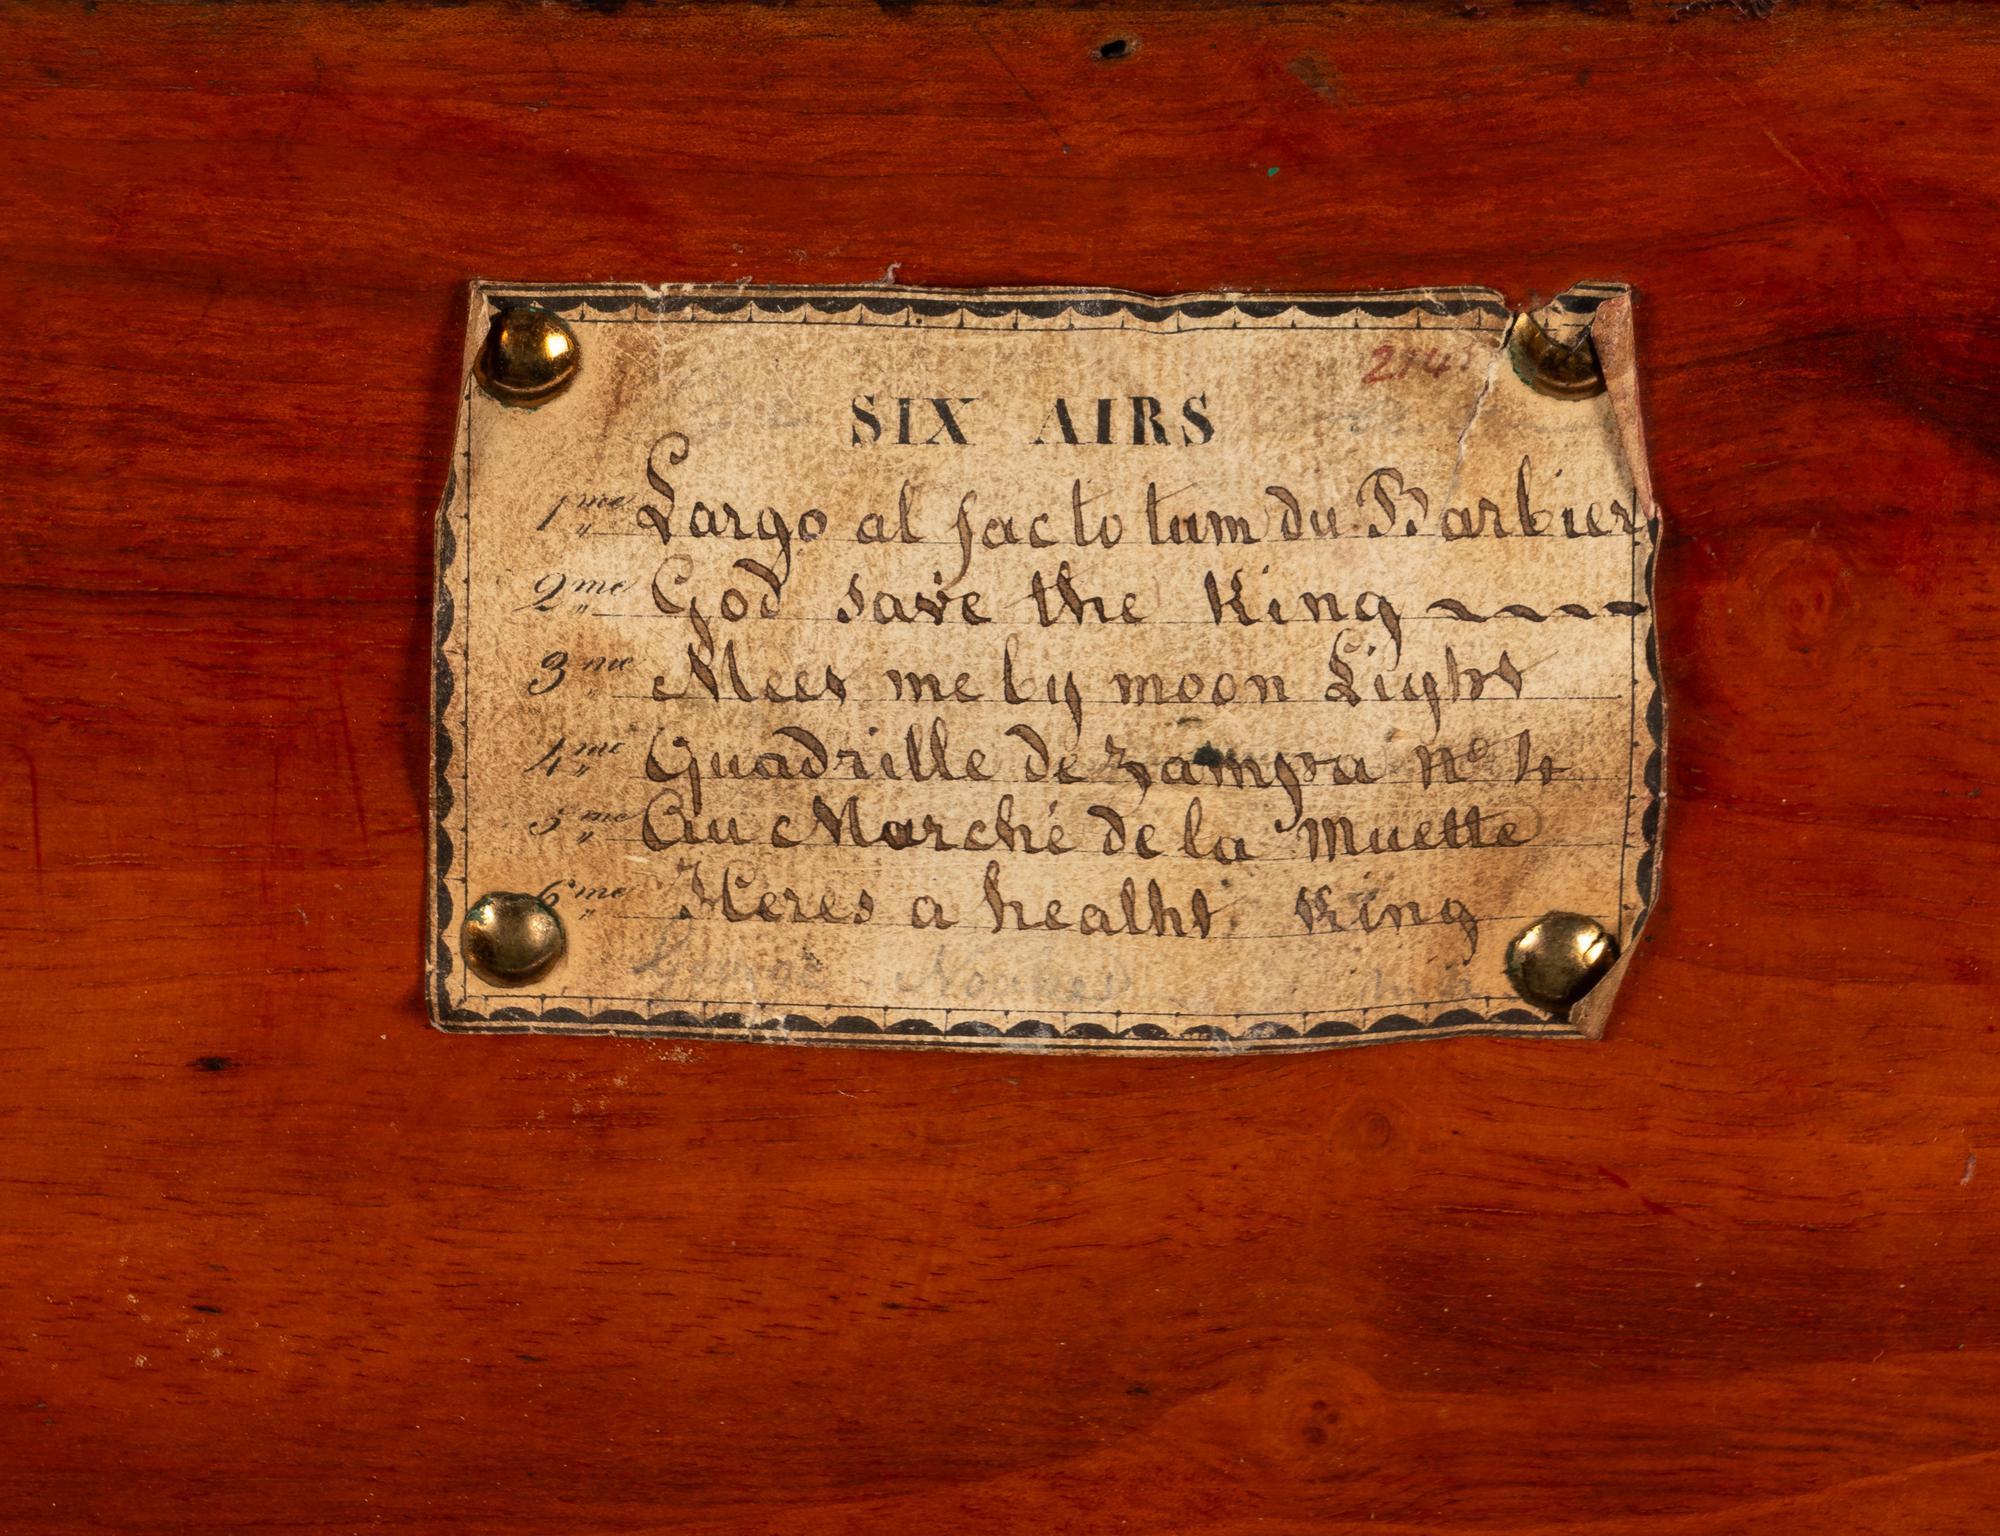 SIX AIRS
1me Largo al facto tum du Barbier
2me God save the King
3me Mees me by moon Light
4me Quadrille de Zampa no 4
5me Au Marché de la Muette
6me Heres a healht King